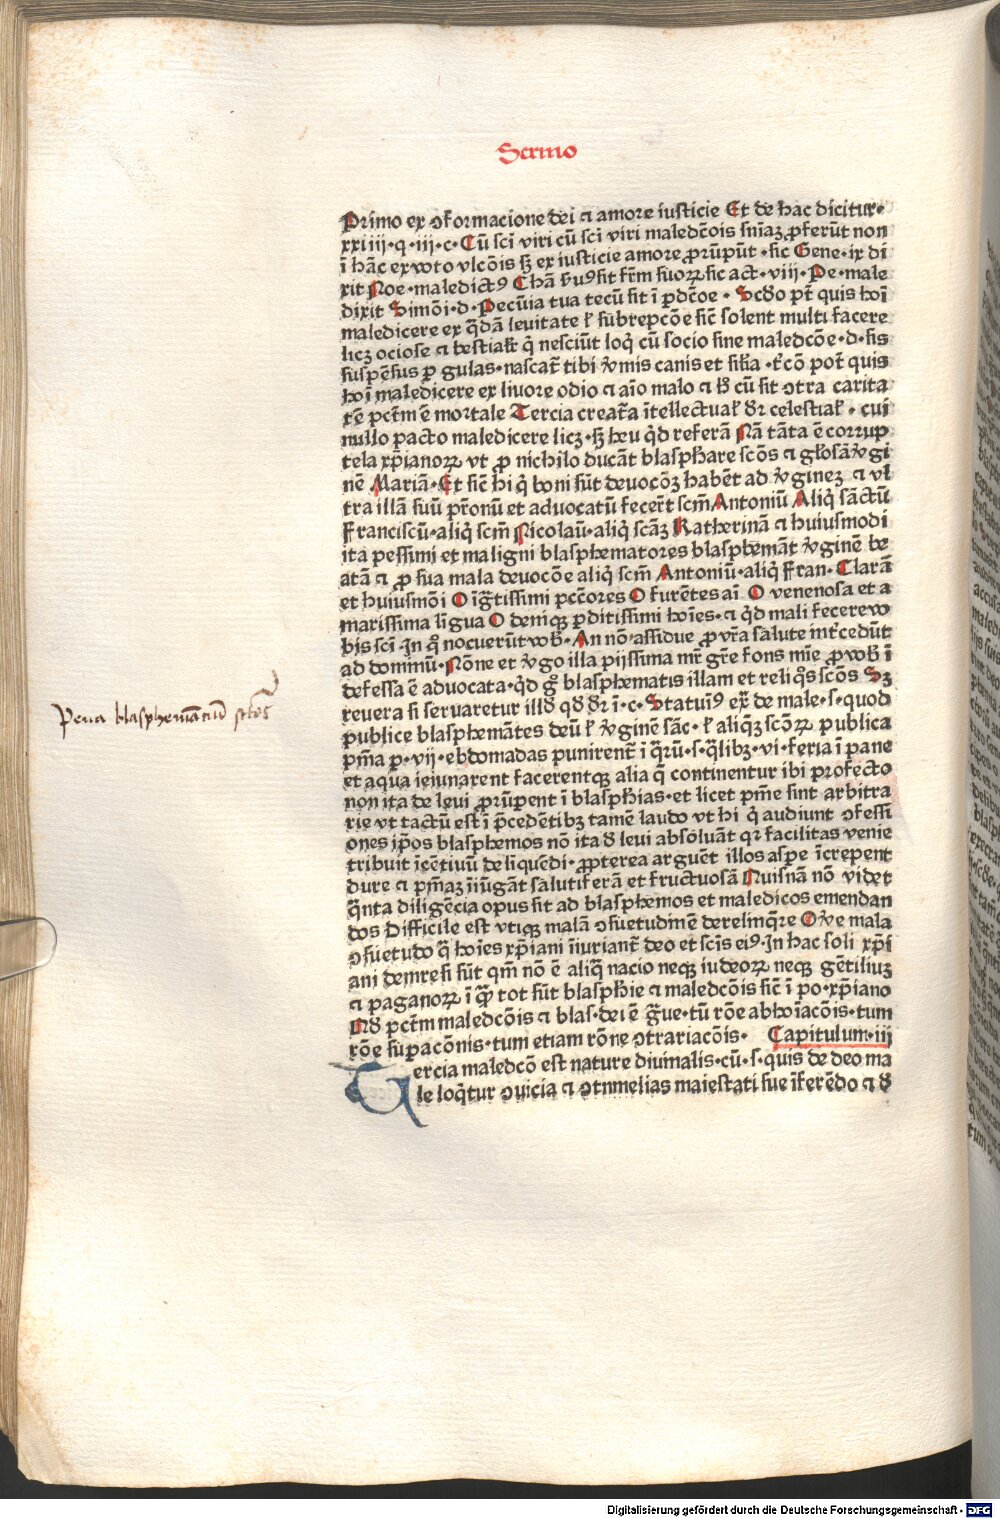 Sermo
Primo ex ↄformacione dei ⁊ amore iusticie Et de hac dicitur·
xxiiii·q·iii·c·Cū sci̅ viri cū sci̅ viri maledc̄ois sn̄iaz ꝓferūt non
ī hāc ex voto vlc̄ois sꝫ ex iusticie amore ꝓrūpūt·sic Gene·ix di
xit Noe·maledictꝰ Chā sit fr̄m suoꝝ sic act·viii·Pe·male
dixit Simōi·d·Pecūia tua tecū sit ī ꝑdc̄oe·Scd̄o pt̄ quis hoı̄
maledicere ex qͣdā leuitate ł subrepcōe sic̄ solent multi facere
licꝫ ociose ⁊ bestialr̄ qͥ nesciūt loqͥ cū socio sine maledcōe·d·sis
suspēsus ꝑ gulas·nascat̄ tibi v̄mis canis et silīa·t̄cō pot̄ quis
hoı̄ maledicere ex liuore odio ⁊ aīo malo ⁊ h̄ cū sit ↄtra carita
tē pctm̄ ē mortale Tercia creat̄a ītellectual̄ dr̄ celestial̄·cui
nullo pacto maledicere licꝫ·sꝫ heu qͥd referā Nā tāta ē corrup
tela xp̄ianoꝝ vt ꝓ nichilo ducāt blasphare scōs ⁊ gl̄osā v̄gi
nē Mariā·Et sic̄ hi qͥ boni sūt deuocōꝫ habēt ad v̄ginez ⁊ vl
tra illā suū pr̄onū et aduocatū fecer̄t scm̄ Antoniū Aliqͥ sāctū
Franciscū·aliqͥ scm̄ Nicolaū·aliqͥ scāꝫ Katherinā ⁊ huiusmodi
ita pessimi et maligni blasphematores blasphemāt v̄ginē be
atā ⁊ ꝓ sua mala deuocōe aliqͥ scm̄ Antoniū·aliqͥ Fran·Clarā
et huiusmōi O īgr̄tissimi pcc̄ores O furētes aī O venenosa et a
marissima līgua O deniqꝫ ꝑditissimi hoīes·⁊ qͥd mali fecere vo
bis sci̅·In qͦ nocuerūt vob̄·An nō assidue ꝓ vr̄a salute mr̄cedūt
ad dominū·Nōne et v̄go illa pijssima mr̄ gr̄e fons mīe ꝓ vob̄ ī
defessa ē aduocata·qͥd gͦ blasphematis illam et reliqͦs scōs Sꝫ
reuera si seruaretur illd̄ qd̄ dr̄ ī·c·Statuimꝰ exͣ de male·s·quod
publice blasphemātes deū ł v̄ginē sāc·ł aliqꝫ scōꝝ publica
pīna ꝑ·vij·ebdomadas punirent̄ ī qͣrū·s·qͣlibꝫ·vi·feria ī pane
et aqua ieiunarent facerentqꝫ alia q̄ continentur ibi profecto
non ita de leui ꝓrūpent ī blasphīas·et licet pm̄e sint arbitra
rie vt tactū est ī p̄cedētibꝫ tamē laudo vt hi qͥ audiunt ↄfessi
ones ip̄os blasphemos nō ita d̄ leui absoluāt qꝛ facilitas venie
tribuit īcētiuū deliquēdi·ꝓpterea arguēt illos aspe īcrepent
dure ⁊ pm̄az īiūgāt salutiferā et fructuosā Nuisnā nō videt
qͣnta diligēcia opus sit ad blasphemos et maledicos emendan
dos Difficile est vtiqꝫ malā ↄsuetudīnē derelinqͣre O v̄e mala
ↄsuetudo qͣ hoīes xp̄iani īiuriant̄ deo et scīs eiꝰ·In hac soli xp̄i
ani demersi sūt qm̄ nō ē aliqͣ nacio neqꝫ iudeoꝝ neqꝫ gētiliuꝫ
⁊ paganoꝝ ī qͣ tot sūt blasphīe ⁊ maledcōis sic̄ ī po·xp̄iano
Nd̄ pctm̄ maledcōis ⁊ blas·dei ē gͣue·tū rōe abhoīacōis·tum
rōe supacōnis·tum etiam rōne ↄtrariacōis· Capitulum·iij
Tercia maledcō est nature diuinalis·cū·s·quis de deo ma
le loqͥtur ↄuicia ⁊ ↄtumelias maiestati sue īferēdo ⁊ d̄
Pena blasphemanciū sctōs
Digitalisierung gefördert durch die Deutsche Forschungsgemeinschaft - DFG